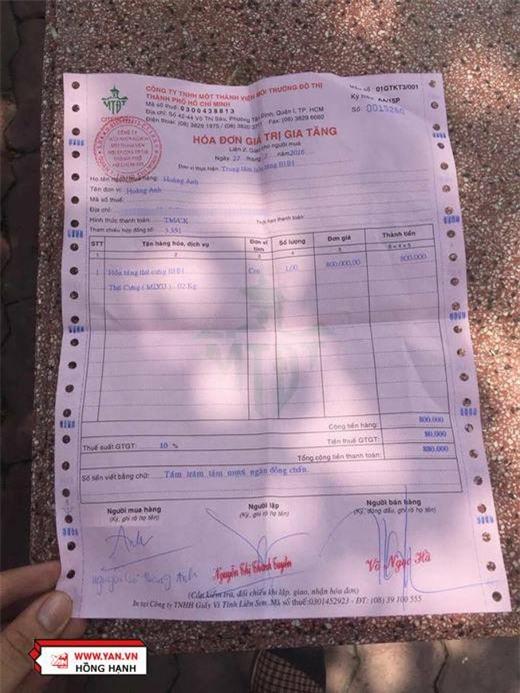 CÔNG TY TNHH MỘT THÀNH VIÊN MÔI TRƯỜNG ĐÔ THỊ
THÀNH PHỐ HỒ CHÍ MINH
Mã số thuế: 0300438813
Địa chỉ: Số 42-44 Võ Thị Sáu, Phường Tân Định, Quận I, TP. HCM
Điện thoại: (08) 3829 1975 / (08) 3820 Fax: (08) 3829 6680
MTĐT
số: 01GTKT3/001
Ký hiệu: /15P
Số:
HÓA ĐƠN GIÁ TRỊ GIA TĂNG
Liên 2: Giao cho người mua
Ngày 27 tháng năm 2016
Đơn vị thực hiện: Trung tâm
Họ tên người mua hàng: Hoàng Anh
Tên đơn vị: Hoàng Anh
Mã số thuế:
Địa chỉ:
Hình thức thanh toán: TM/CK Thời hạn thanh toán:
Tham chiếu hợp đồng số: 3.591
STT Tên hàng hóa, dịch vụ Đơn vị tính Số lượng Đơn giá Thành tiền
1 2 3 4 5 6 = 4 x 5
1 Hỏa táng thú cưng Con 1,00 800.000,00 800.000
Thú Cưng ( MIXU ) - 02 Kg
MTĐT
Cộng tiền hàng: 800.000
Thuế suất GTGT: 10 % Tiền thuế GTGT: 80.000
Tổng cộng tiền thanh toán: 880.000
Số tiền viết bằng chữ: Tám trăm tám mươi ngàn đồng chẵn.
Người mua hàng Người lập Người bán hàng
(Ký, ghi rõ họ tên) (Ký, ghi rõ họ tên) (Ký, đóng dấu, ghi rõ họ tên)
Anh
Nguyễn Hoàng Anh Nguyễn Thị Thanh Tuyền Võ Ngọc Hà
(Cần kiểm tra, đối chiếu khi lập, giao, nhận hóa đơn)
In tại Công ty TNHH Giấy Vi Tính Liên Sơn. Mã số thuế: 0301452923 - ĐT: (08) 39 100 555
YAN
WWW.YAN.VN
HỒNG HẠNH